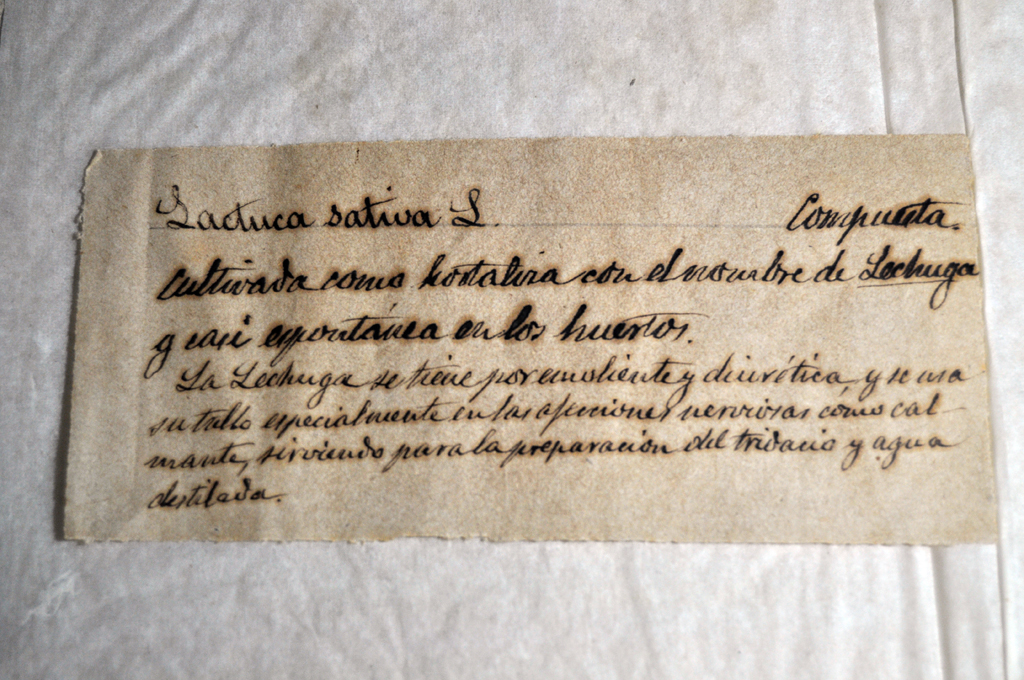 Lactuca sativa L. Compuesta.
Cultivada como hortaliza con el nombre de Lechuga
y casi espontánea en los huertos.
La Lechuga se tiene por emoliente y diurética, y se usa
su tallo especialmente en las afecciones nerviosas cómo cal
mante, sirviendo para la preparación del tridacio y agua
destilada.